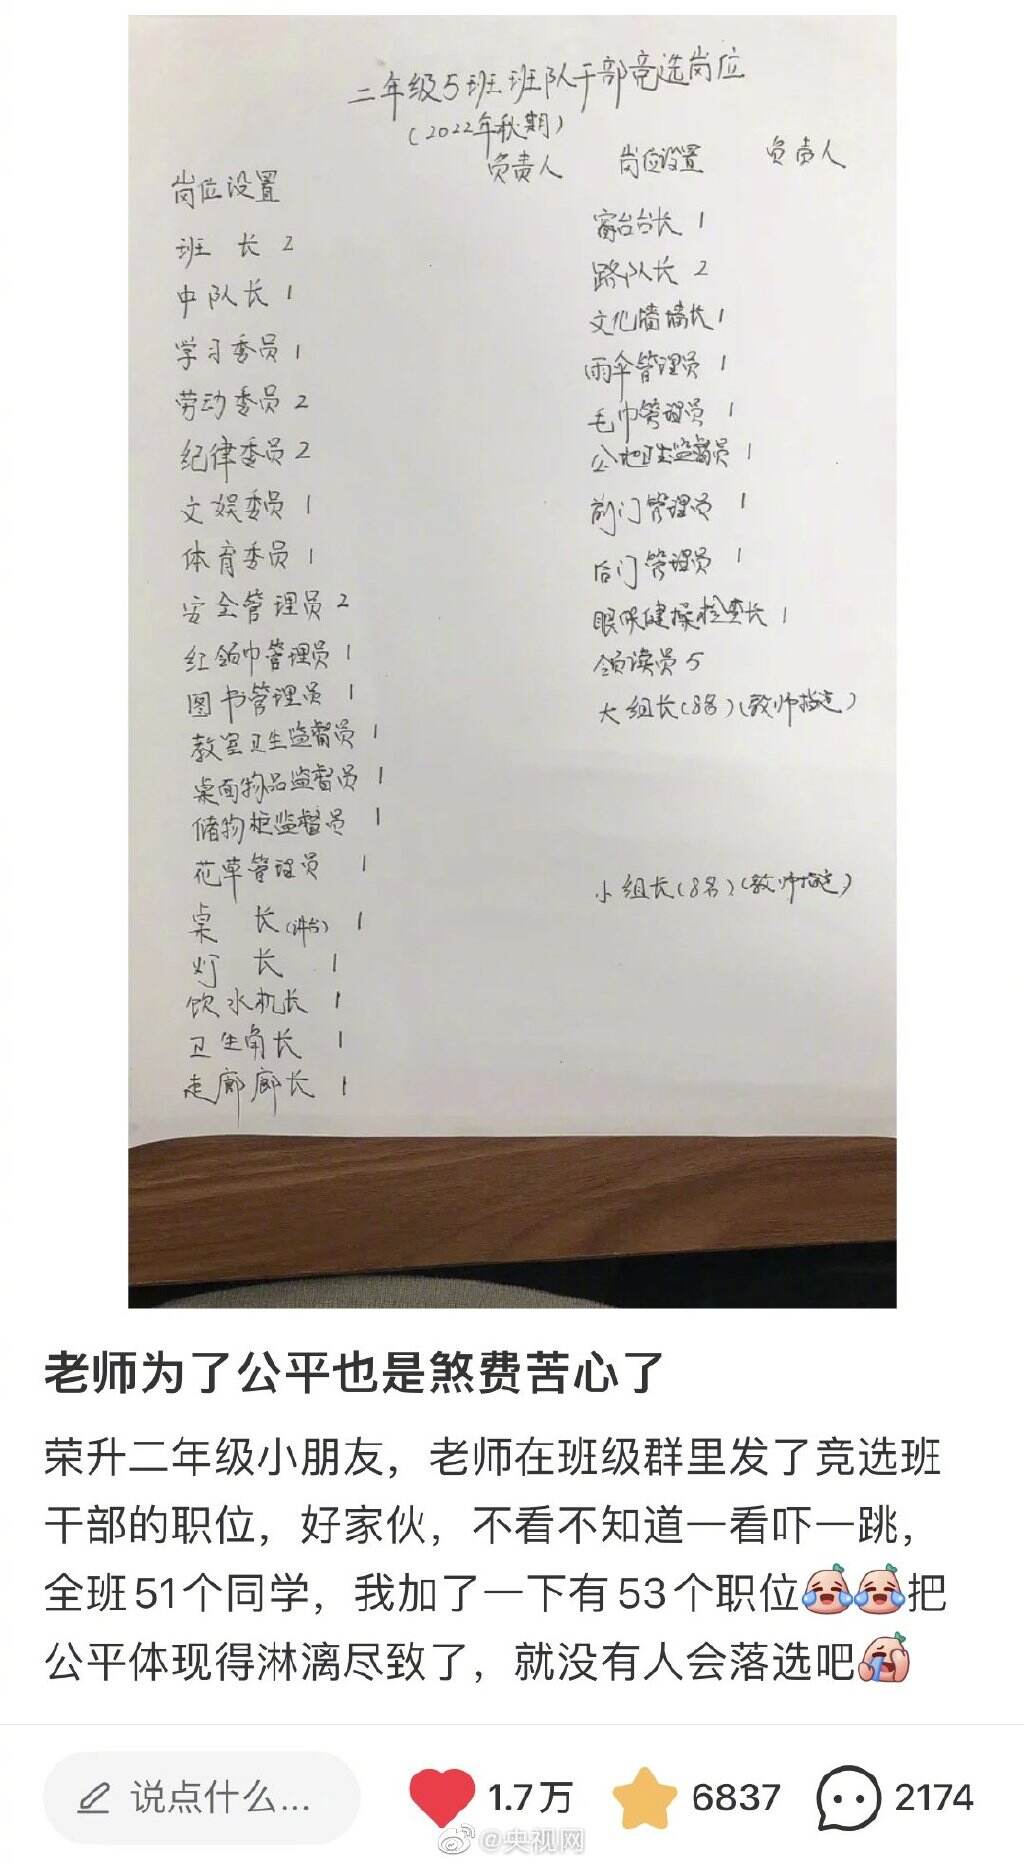 二年级5班班队干部竞选岗位
(2022年秋期)
岗位设置 负责人
班 长 2
中队长 1
学习委员 1
劳动委员 2
纪律委员 2
文娱委员 1
体育委员 1
安全管理员 2
红领巾管理员 1
图书管理员 1
教室卫生监督员 1
桌面物品监督员 1
储物柜监督员 1
花草管理员 1
桌 长(讲台) 1
灯 长 1
饮水机长 1
卫生角长 1
走廊廊长 1
岗位设置 负责人
窗台台长 1
路队长 2
文化墙墙长 1
雨伞管理员 1
毛巾管理员 1
公地卫生监督员 1
前门管理员 1
后门管理员 1
眼保健操检查长 1
领读员 5
大组长(8名)(教师指定)
小组长(8名)(教师指定)
老师为了公平也是煞费苦心了
荣升二年级小朋友，老师在班级群里发了竞选班
干部的职位，好家伙，不看不知道一看吓一跳，
全班51个同学，我加了一下有53个职位😂😂把
公平体现得淋漓尽致了，就没有人会落选吧
说点什么... 1.7万 6837 2174
@央视网